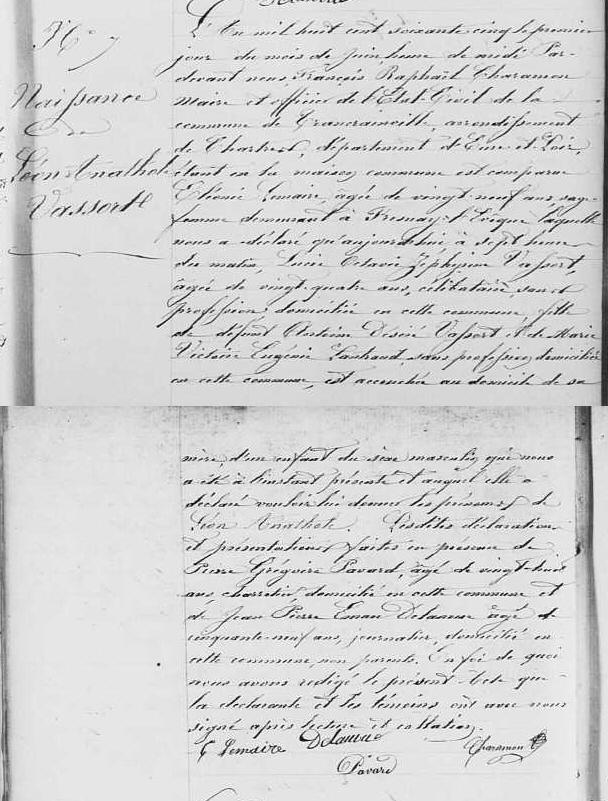 N° 7
Naissance
de
Léon Anathole
Vassort
L'An mil huit cent soixante cinq le premier
jour du mois de Juin, heure de midi Par-
devant nous, François Raphaël Charamon
Maire et officier de l'Etat-Civil de la
commune de Trancrainville, arrondissement
de Chartres, département d'Eure et Loir,
étant en la maison commune est comparue
Elionie Lemaire, âgée de vingt-neuf ans, sage-
femme demeurant à Fresnay-l'Evêque laquelle
nous a déclaré qu'aujourd'hui à sept heures
du matin, Lucie Octavie Zéphirine Vassort,
âgée de vingt-quatre ans, célibataire, sans
profession, domiciliée en cette commune, fille
de défunt Désiré Vassort et de Marie
Victoire Eugénie sans profession, domiciliée
en cette commune, est accouchée au domicile de sa
mère, d'un enfant du sexe masculin, que nous
a été à l'instant présenté et auquel elle a
déclaré vouloir lui donner les prénoms de
Léon Anathole. Lesdites déclaration
et présentation faites en présence de
Pierre Grégoire Pavard, âgé de vingt-huit
ans, charretier, domicilié en cette commune et
de Jean Pierre Delanoue âgé de
cinquante-neuf ans, journalier, domicilié en
cette commune, non parents. En foi de quoi
nous avons rédigé le présent Acte que
la déclarante et les témoins ont avec nous
signé après lecture et collation.
E Lemaire Delanoue
Charamon
Pavard